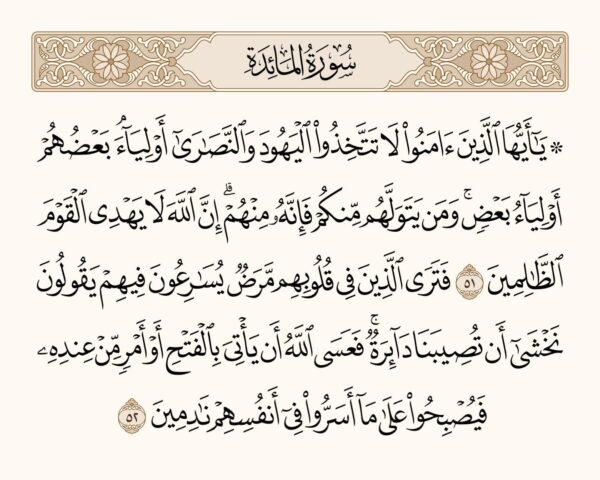 سُورَةُ المَائِدَةِ
۞ يَٰٓأَيُّهَا ٱلَّذِينَ ءَامَنُواْ لَا تَتَّخِذُواْ ٱلۡيَهُودَ وَٱلنَّصَٰرَىٰٓ أَوۡلِيَآءَۘ بَعۡضُهُمۡ
أَوۡلِيَآءُ بَعۡضٖۚ وَمَن يَتَوَلَّهُم مِّنكُمۡ فَإِنَّهُۥ مِنۡهُمۡۗ إِنَّ ٱللَّهَ لَا يَهۡدِي ٱلۡقَوۡمَ
ٱلظَّٰلِمِينَ ٥١ فَتَرَى ٱلَّذِينَ فِي قُلُوبِهِم مَّرَضٞ يُسَٰرِعُونَ فِيهِمۡ يَقُولُونَ
نَخۡشَىٰٓ أَن تُصِيبَنَا دَآئِرَةٞۚ فَعَسَى ٱللَّهُ أَن يَأۡتِيَ بِٱلۡفَتۡحِ أَوۡ أَمۡرٖ مِّنۡ عِندِهِۦ
فَيُصۡبِحُواْ عَلَىٰ مَآ أَسَرُّواْ فِيٓ أَنفُسِهِمۡ نَٰدِمِينَ ٥٢